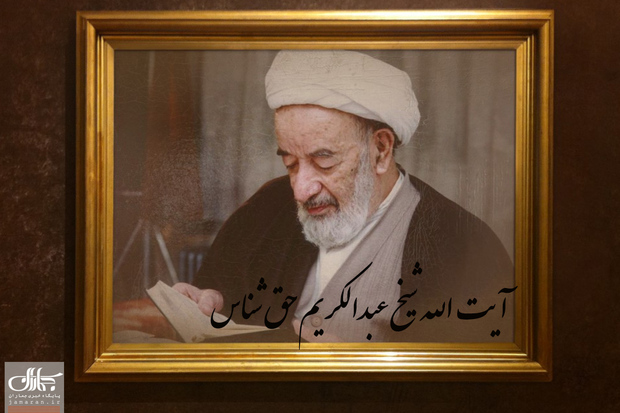 آیت الله شیخ عبدالکریم حق شناس
جماران
پایگاه خبری جماران
jamaran.ir